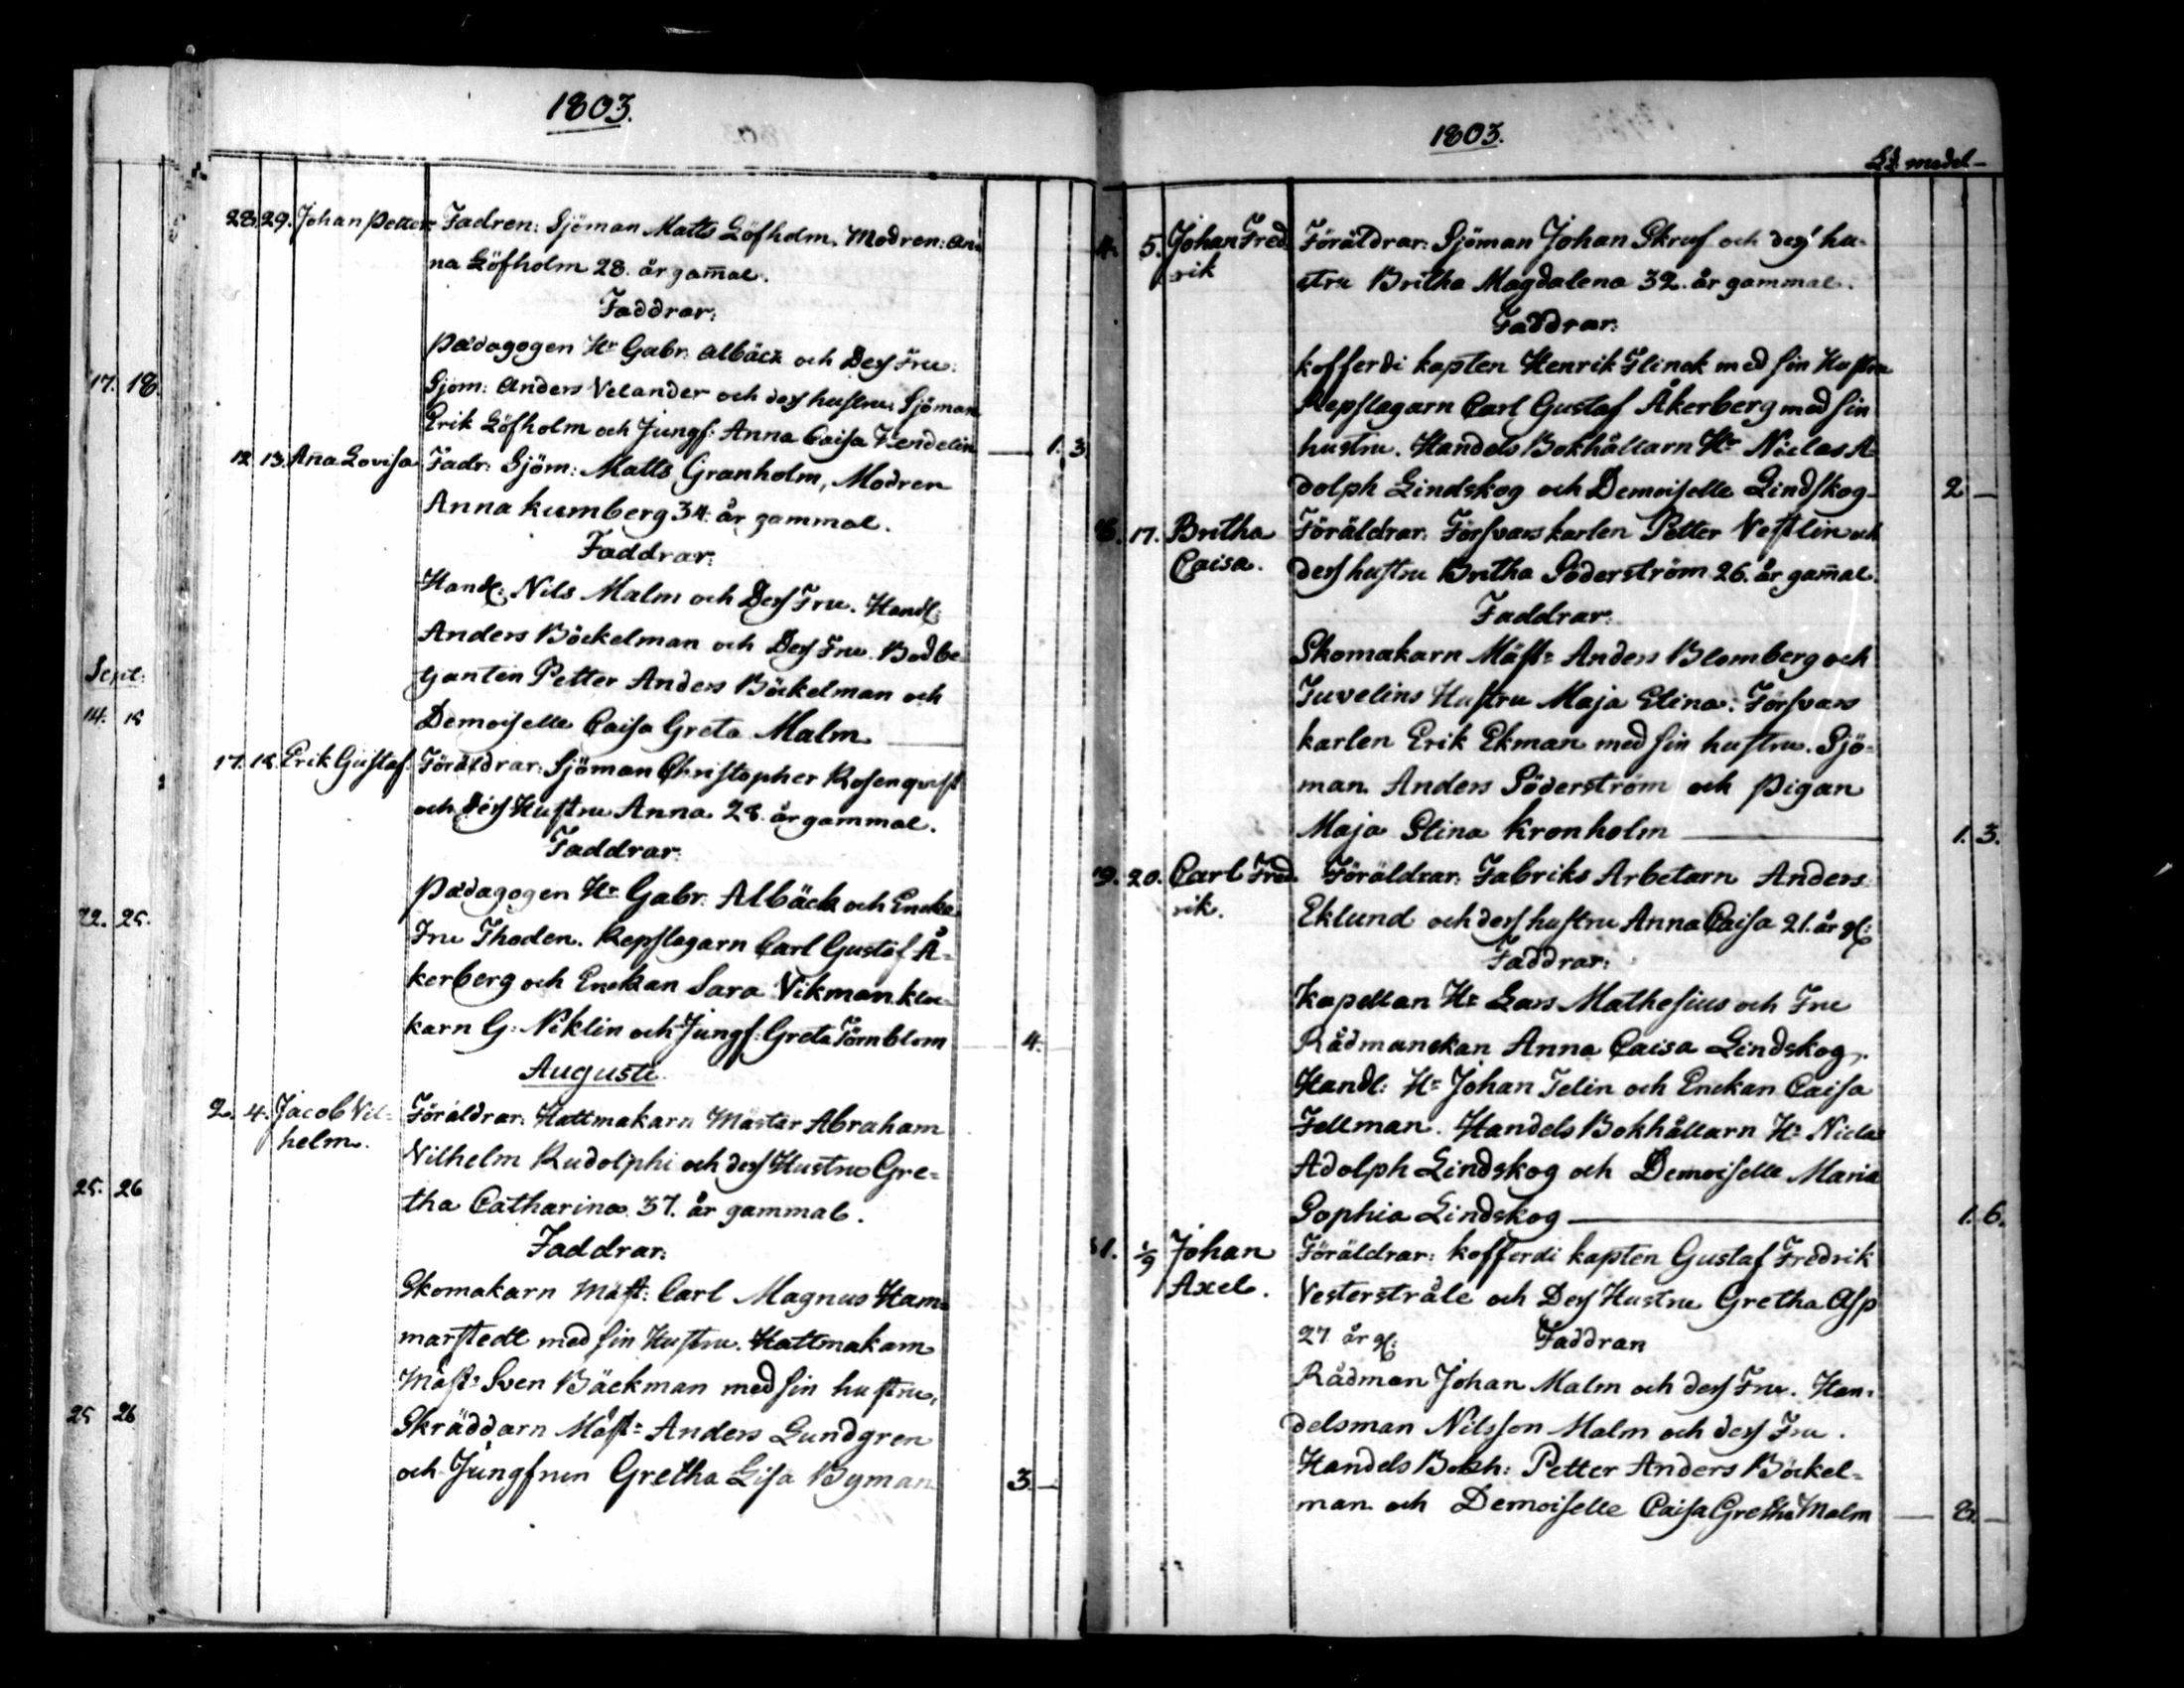 1803.
28. 29. Johan Petter Fadren: Sjöman Matts Löfholm, Modren: An-
na Löfholm 28. år gam̄al.
Faddrar:
Pædagogen Hr Gabr: Albäck och Dess Fru:
Sjöm: Anders Velander och dess hustru. Sjöman
Erik Löfholm och Jungf: Anna Caisa Vendelin — 1. 3
12 13. An̄a Lovisa Fadr: Sjöm: Matts Granholm, Modren
Anna Kumberg 34. år gammal.
Faddrar:
Handl: Nils Malm och Dess Fru. Handl:
Anders Böckelman och Dess Fru. Bodbe-
tjenten Petter Anders Böckelman och
Demoiselle Caisa Greta Malm —
17. 18. Erik Gustaf. Föräldrar: Sjöman Christopher Rosenqvist
och Dess Hustru Anna 28. år gammal.
Faddrar:
Pædagogen Hr Gabr: Albäck och Encke
Fru Thoden. Repslagarn Carl Gustaf Å-
kerberg och Enckan Sara Vikman Kloc-
karn G: Niklin och Jungf: Greta Törnblom — 4. —
Augusti
2. 4. Jacob Vil-
helm. Föräldrar: Hattmakarn Mäster Abraham
Vilhelm Rudolphi och dess Hustru Gre-
tha Catharina 37. år gammal.
Faddrar:
Skomakarn Mäst: Carl Magnus Ham-
marstedt med sin Hustru. Hattmakarn
Mäst: Sven Bäckman med sin hustru,
Skräddarn Mäst: Anders Lundgren
och Jungfrun Gretha Lisa Byman 3. —
17. 18.
Sept:
14. 15
22. 25.
25. 26
25 26
1803.
medel —
4. 5. Johan Fred-
rik Föräldrar: Sjöman Johan Skruf och dess hu-
stru Britha Magdalena 32. år gammal.
Faddrar:
Kofferdi kapten Henrik Flinck med sin Hustru
Repslagarn Carl Gustaf Åkerberg med sin
hustru. Handels Bokhållarn Hr Niclas A-
dolph Lindskog och Demoiselle Lindskog — 2 —
17. Britha
Caisa. Föräldrar: Försvarskarlen Petter Vestlin och
dess hustru Britha Söderström 26. år gam̄al.
Faddrar:
Skomakarn Mäst: Anders Blomberg och
Juvelins Hustru Maja Stina. Försvars
karlen Erik Ekman med sin hustru. Sjö-
man Anders Söderström och Pigan
Maja Stina Kronholm — 1. 3.
19. 20. Carl Fred-
rik. Föräldrar: Fabriks Arbetarn Anders
Eklund och dess hustru Anna Caisa 21. år gl:
Faddrar:
Kapellan Hr Lars Mathesius och Fru
Rådmanskan Anna Caisa Lindskog,
Handl: Hr Johan Telin och Enckan Caisa
Fellman. Handels Bokhållarn Hr Niclas
Adolph Lindskog och Demoiselle Maria
Sophia Lindskog — 1. 6.
31. 1/9 Johan
Axel. Föräldrar: Kofferdi kapten Gustaf Fredrik
Vesterstråle och Dess Hustru Gretha Asp
27 år gl: Faddrar
Rådman Johan Malm och dess Fru. Han-
delsman Nilsson Malm och dess Fru.
Handels Bokh: Petter Anders Böckel-
man och Demoiselle Caisa Gretha Malm — 2. —